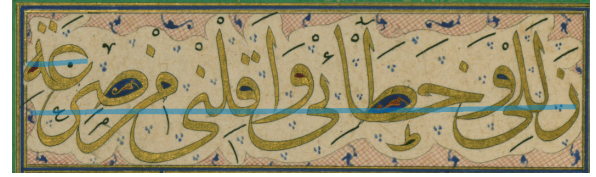 زللي وخطائي واقلني من صرعة